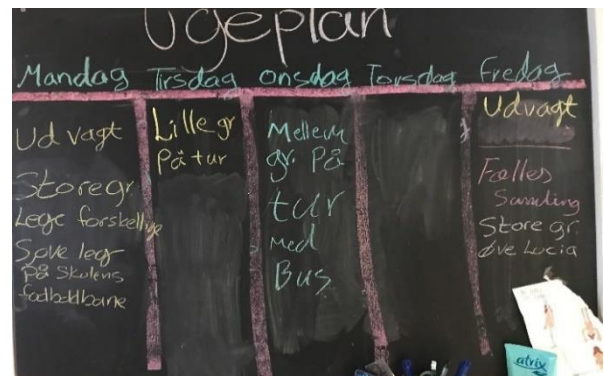 Ugeplan
Mandag Tirsdag Onsdag Torsdag Fredag
Ud vagt
Store gr
Lege forskellige
Sove lege
på Skolens
fodboldbane
Lille gr
På tur
Mellem
gr. På
tur
med
Bus
Udvagt
Fælles
Samling
Store gr.
øve Lucia
atrix